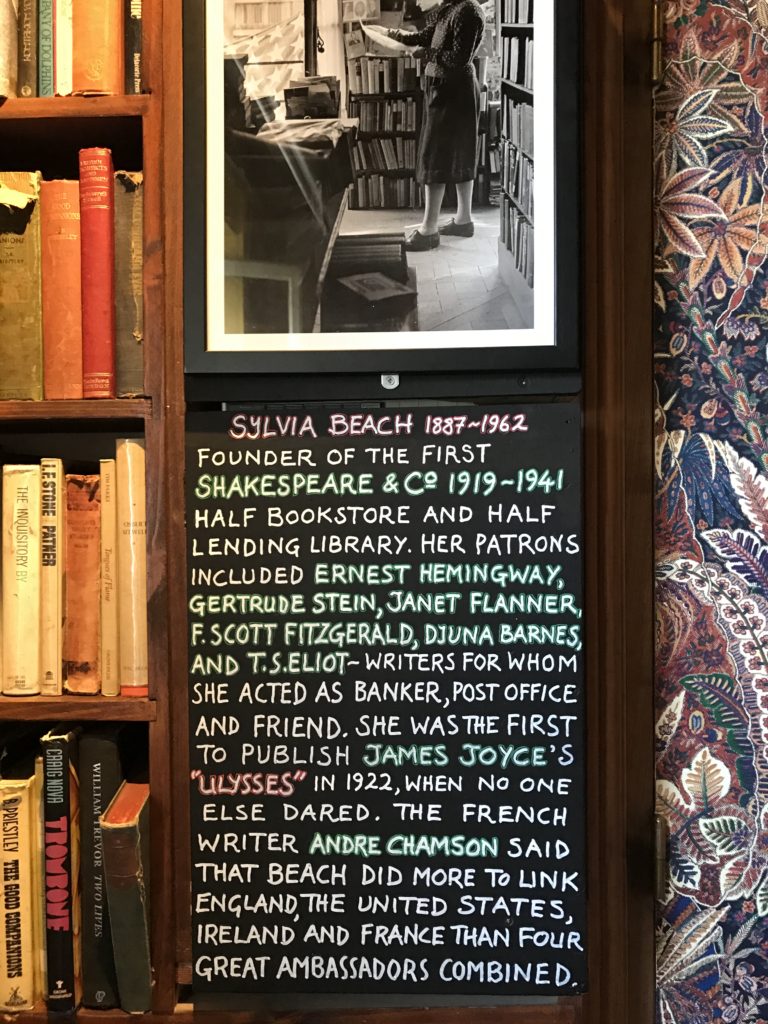 SYLVIA BEACH 1887~1962
FOUNDER OF THE FIRST
SHAKESPEARE & Cº 1919~1941
HALF BOOKSTORE AND HALF
LENDING LIBRARY. HER PATRONS
INCLUDED ERNEST HEMINGWAY,
GERTRUDE STEIN, JANET FLANNER,
F. SCOTT FITZGERALD, DJUNA BARNES,
AND T.S.ELIOT~WRITERS FOR WHOM
SHE ACTED AS BANKER, POST OFFICE
AND FRIEND. SHE WAS THE FIRST
TO PUBLISH JAMES JOYCE'S
"ULYSSES" IN 1922, WHEN NO ONE
ELSE DARED. THE FRENCH
WRITER ANDRE CHAMSON SAID
THAT BEACH DID MORE TO LINK
ENGLAND, THE UNITED STATES,
IRELAND AND FRANCE THAN FOUR
GREAT AMBASSADORS COMBINED.
OF DOLPHINS
THE INQUISITORY BY
I.F. STONE
PRIESTLEY THE GOOD COMPANIONS
CRAIG NOVA
WILLIAM TREVOR TWO LIVES